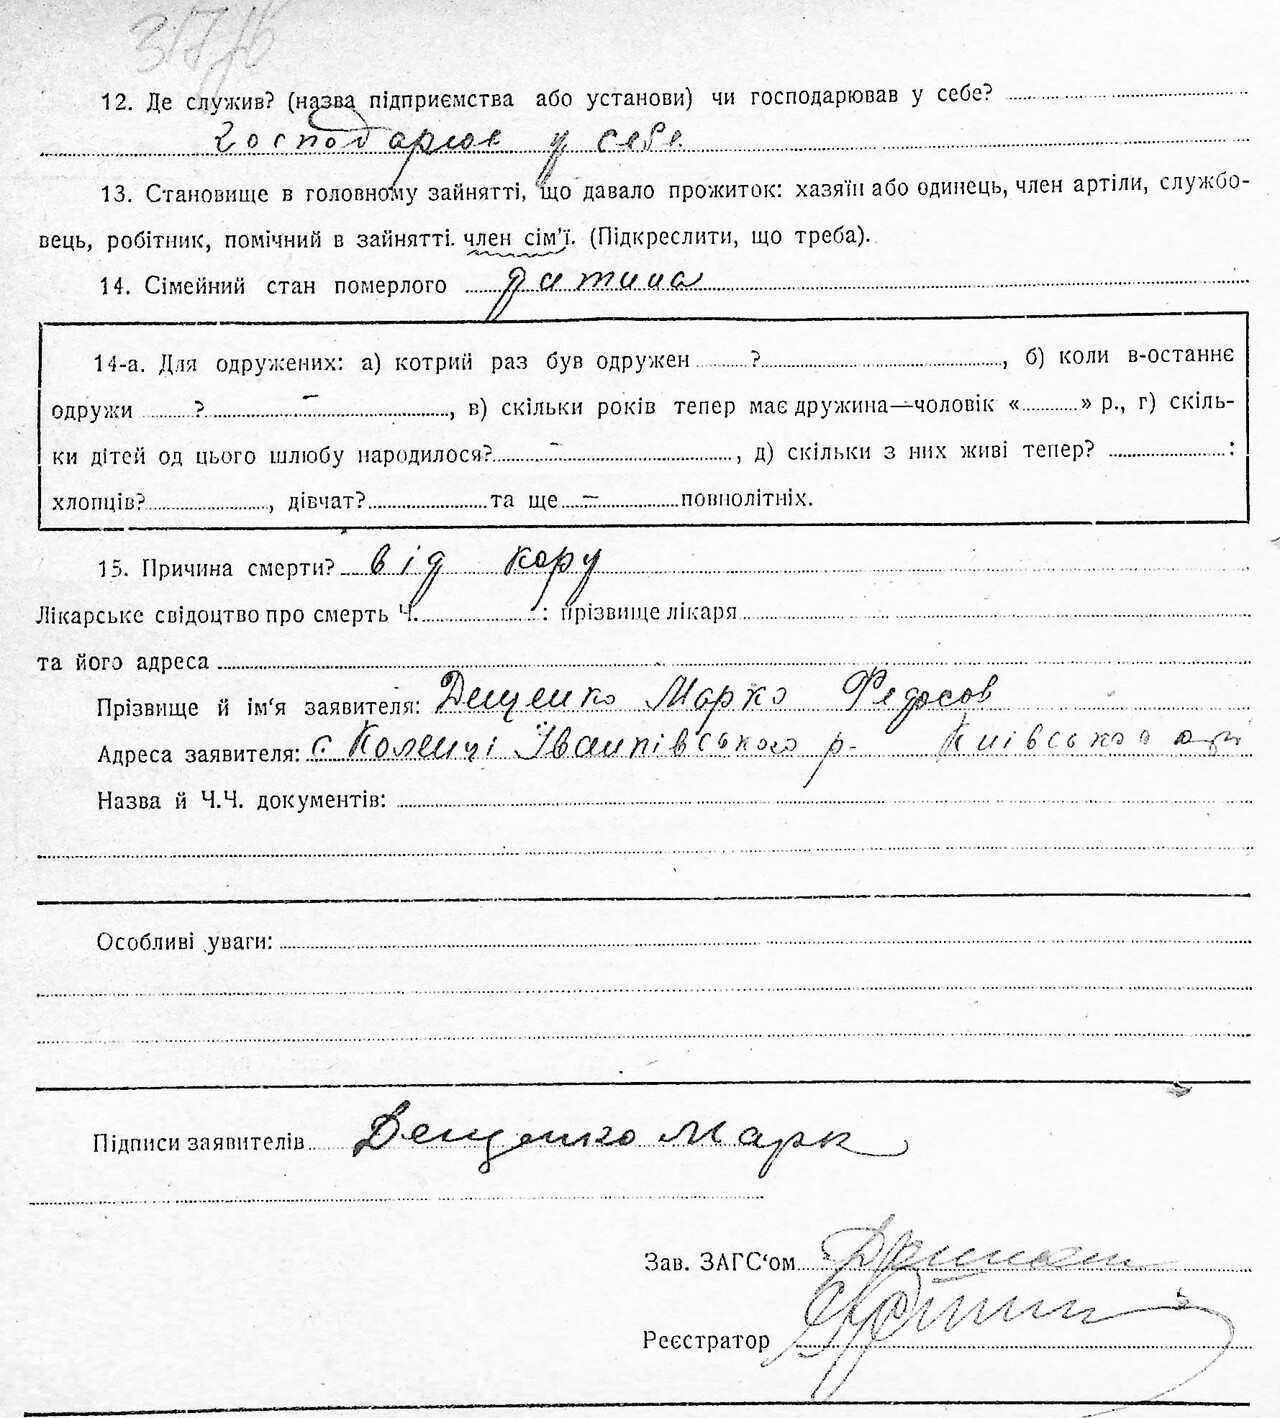 317/б
12. Де служив? (назва підприємства або установи) чи господарював у себе?
господарюв у себе.
13. Становище в головному зайнятті, що давало прожиток: хазяїн або одинець, член артіли, службо-
вець, робітник, помічний в зайнятті. член сім'ї. (Підкреслити, що треба).
14. Сімейний стан померлого дитина
14-а. Для одружених: а) котрий раз був одружен ?, б) коли в-останнє
одружи ? –, в) скільки років тепер має дружина—чоловік « » р., г) скіль-
ки дітей од цього шлюбу народилося? –, д) скільки з них живі тепер? :
хлопців?, дівчат? та ще – повнолітніх.
15. Причина смерти? від кору
Лікарське свідоцтво про смерть Ч. : прізвище лікаря
та його адреса
Прізвище й ім'я заявителя: Дещенко Марко Федосов
Адреса заявителя: с. Коленці Іванківського р. Київської
Назва й Ч.Ч. документів:
Особливі уваги:
Підписи заявителів Дещенко Марк
Зав. ЗАГС'ом
Реєстратор